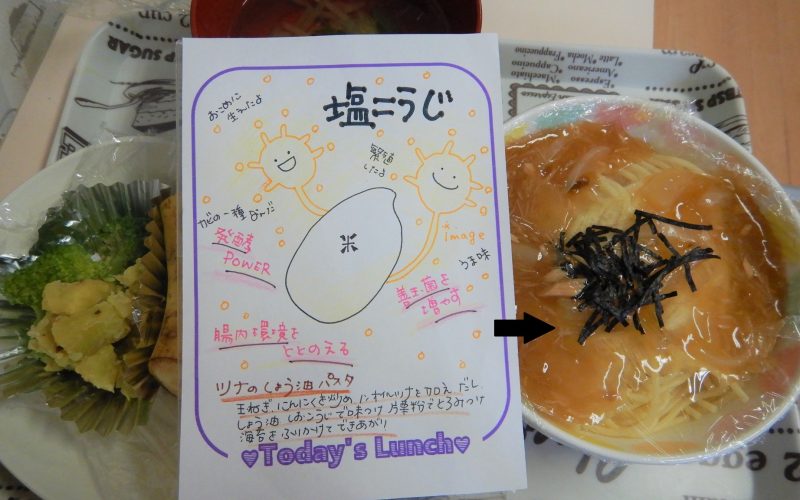 2 CUP
TSP SUGAR
*Latte
*Americano *Mocha
Espresso *Frappucino
*Cappuccino
*Macchiato
塩こうじ
おこめに
生えたよ
繁殖
したよ
カビの一種なんだ
発酵
POWER
米
*image
うま味
善玉菌を
増やす
腸内環境を
ととのえる
ツナのしょう油パスタ
玉ねぎ、にんにくを炒め、にんじんツナを加え だし、
しょう油 しおこうじで味つけ 片栗粉でとろみつけ
海苔をふりかけてできあがり
♥Today's Lunch♥
2 egg